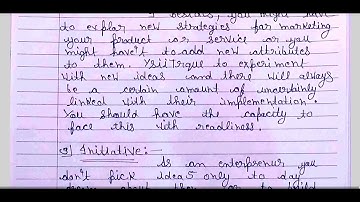 you might have
to explor new strategies for marketing
your product or service or you
might have't to add new attributes
to them. to experiment
with new ideas and there will always
be a certain amount of uncertainly
linked with their implementation.
You should have the capacity to
face this with readiness.
3) Initiative:-
As an enterprenur you
don't pick ideas only to day